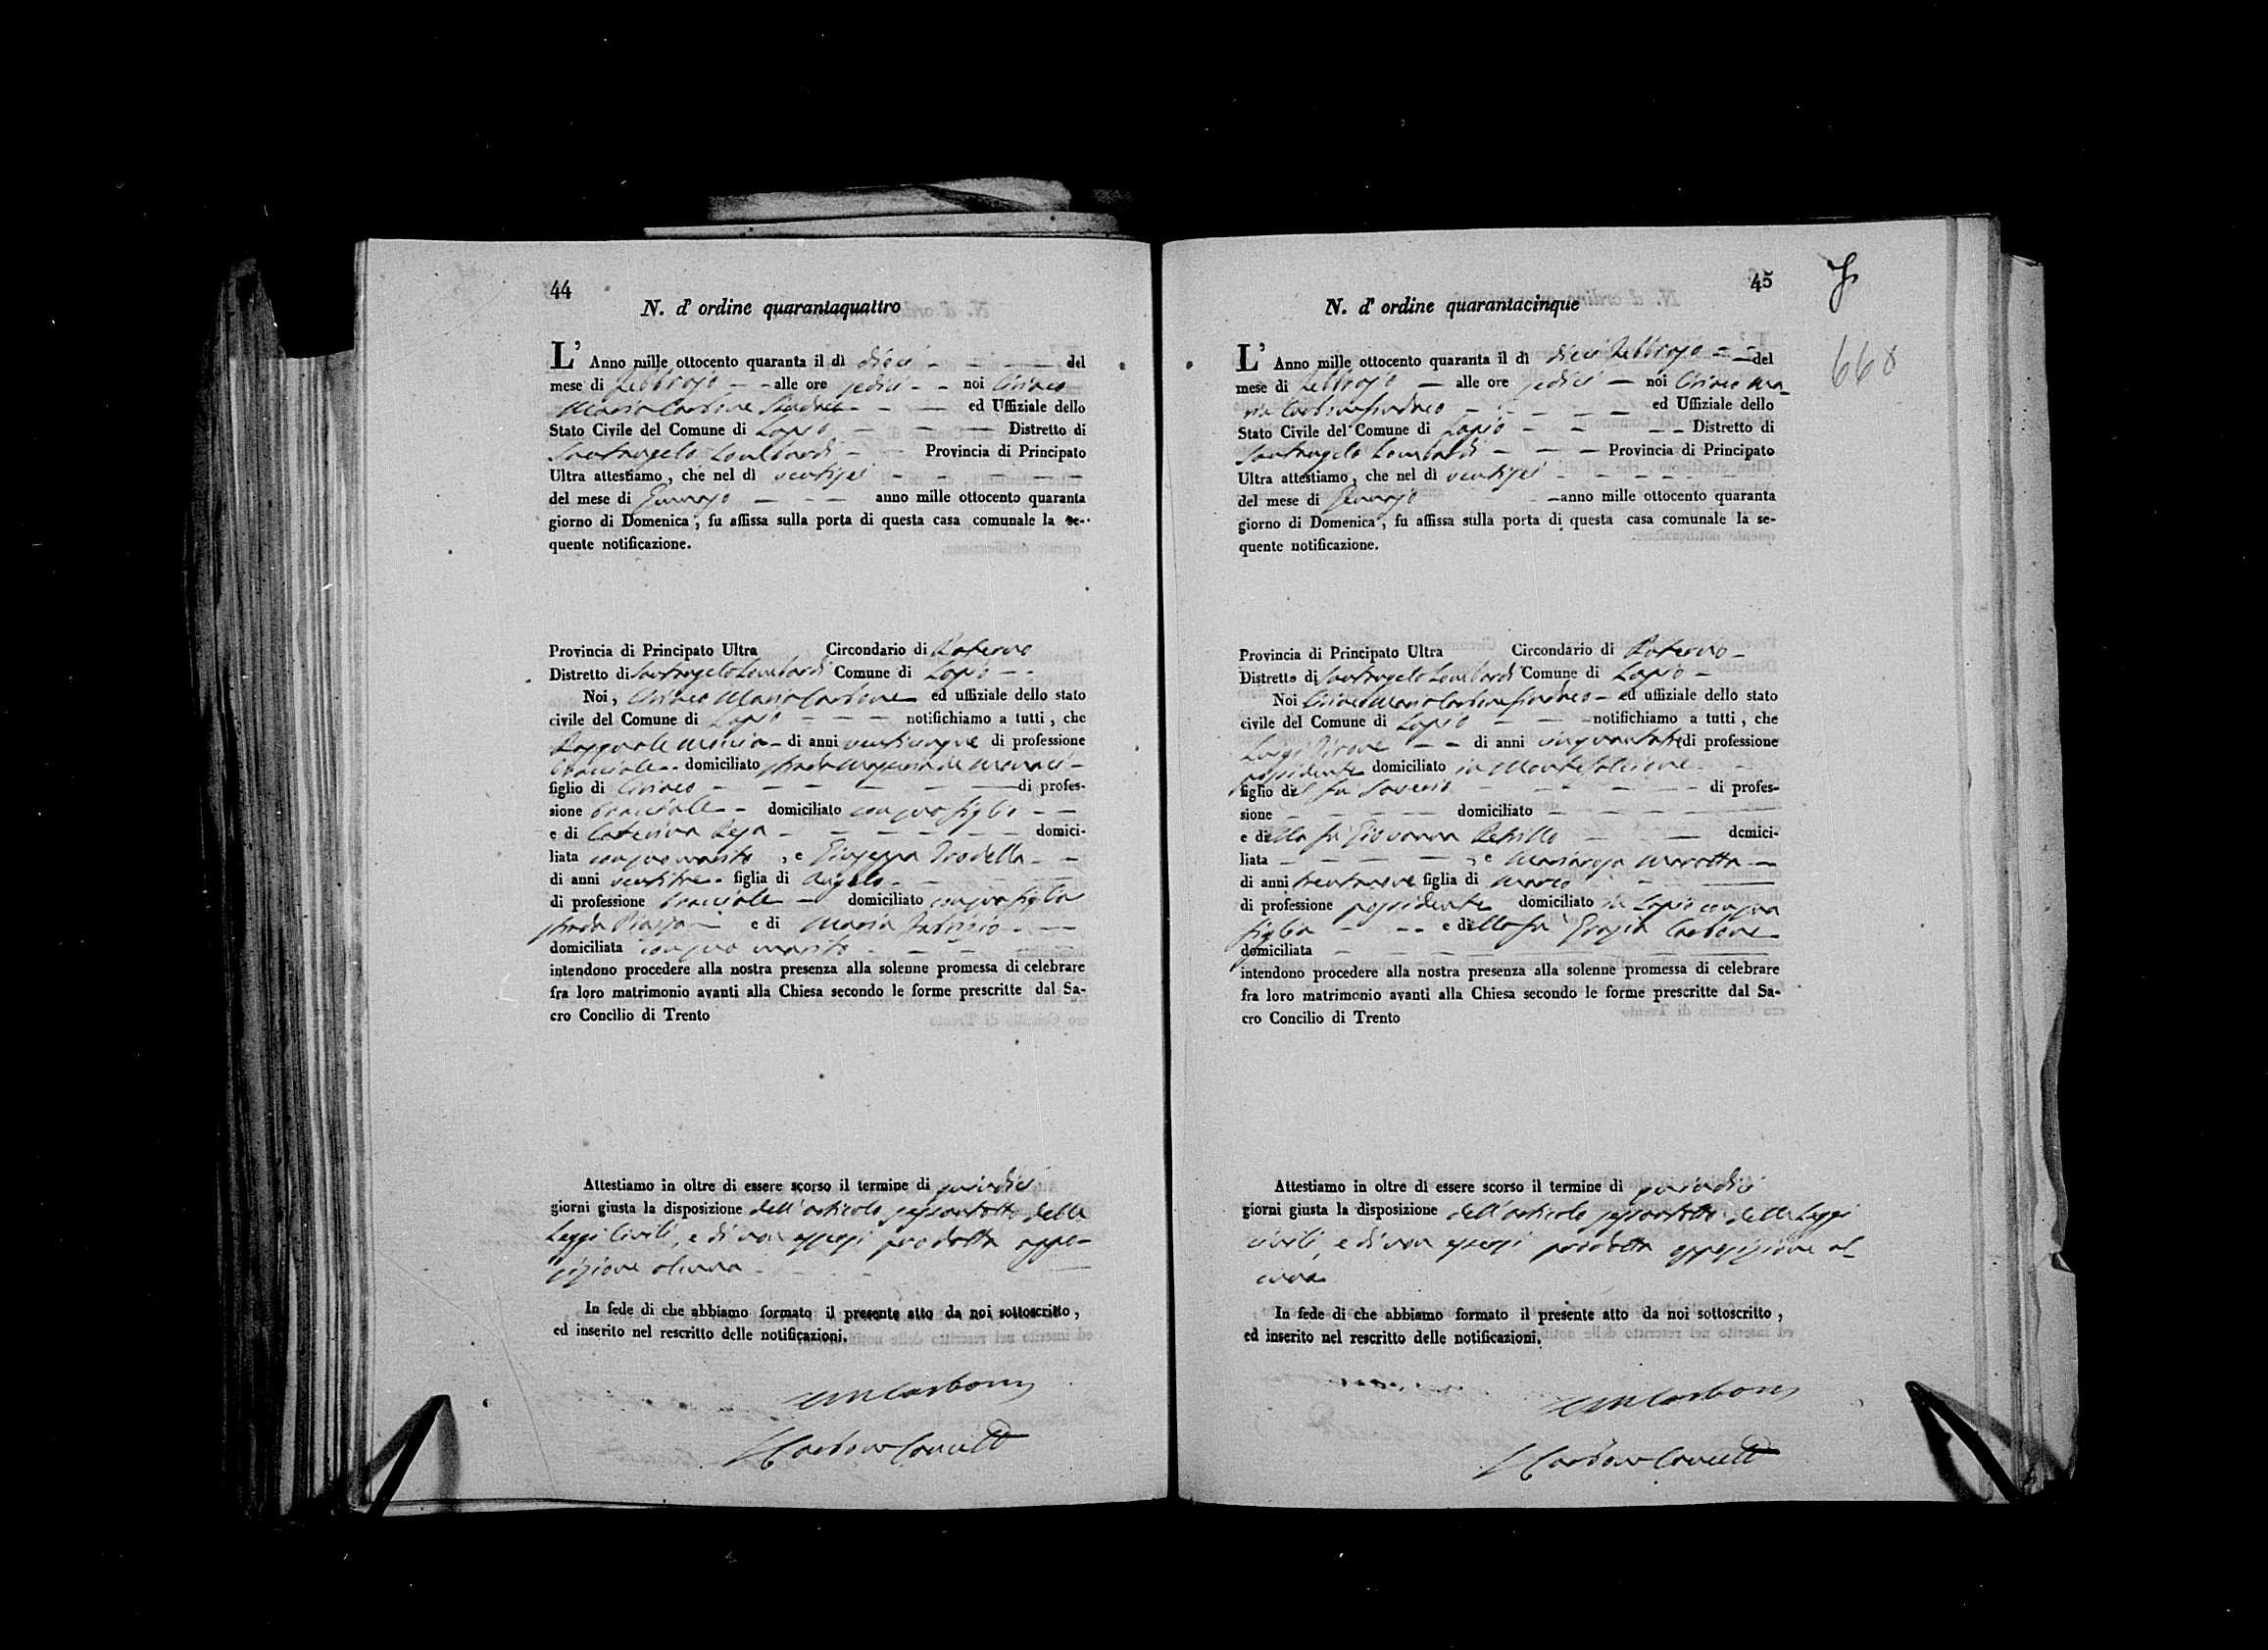 44
N. d' ordine quarantaquattro
L' Anno mille ottocento quaranta il dì dieci del
mese di Febbrajo alle ore sedici noi Ciriaco
Maria Carbone Sindaco ed Uffiziale dello
Stato Civile del Comune di Lapio Distretto di
Santangelo Lombardi Provincia di Principato
Ultra attestiamo, che nel dì ventisei
del mese di Gennajo anno mille ottocento quaranta
giorno di Domenica, fu affissa sulla porta di questa casa comunale la se-
quente notificazione.
Provincia di Principato Ultra Circondario di Paterno
Distretto di Santangelo Lombardi Comune di Lapio
Noi, Ciriaco Maria Carbone ed uffiziale dello stato
civile del Comune di Lapio notifichiamo a tutti, che
Pasquale di anni venticinque di professione
bracciale domiciliato strada
figlio di Ciriaco di profes-
sione bracciale domiciliato con suo figlio
e di Caterina domici-
liata con suo marito, e Giuseppa Trodella
di anni ventitre figlia di Angelo
di professione bracciale domiciliato con sua figlia
strada Piazza e di Maria Fabrizio
domiciliata con suo marito
intendono procedere alla nostra presenza alla solenne promessa di celebrare
fra loro matrimonio avanti alla Chiesa secondo le forme prescritte dal Sa-
cro Concilio di Trento
Attestiamo in oltre di essere scorso il termine di quindici
giorni giusta la disposizione dell'articolo sessantotto delle
Leggi Civili, e di non essersi prodotta oppo-
sizione alcuna
In fede di che abbiamo formato il presente atto da noi sottoscritto,
ed inserito nel rescritto delle notificazioni.
CMCarbone
Carbone Cancell
45
668
N. d' ordine quarantacinque
L' Anno mille ottocento quaranta il dì dieci Febbrajo del
mese di Febbrajo alle ore sedici noi Ciriaco Ma-
ria Carbone Sindaco ed Uffiziale dello
Stato Civile del Comune di Lapio Distretto di
Santangelo Lombardi Provincia di Principato
Ultra attestiamo, che nel dì ventisei
del mese di Gennajo anno mille ottocento quaranta
giorno di Domenica, fu affissa sulla porta di questa casa comunale la se-
quente notificazione.
Provincia di Principato Ultra Circondario di Paterno
Distretto di Santangelo Lombardi Comune di Lapio
Noi Ciriaco Maria Carbone Sindaco ed uffiziale dello stato
civile del Comune di Lapio notifichiamo a tutti, che
Luigi Pirone di anni cinquantatre di professione
possidente domiciliato in Montefalcione
figlio del fu Saverio di profes-
sione domiciliato
e della fu Giovanna Petrillo domici-
liata, e Mariarosa Marotta
di anni trentanove figlia di Marco
di professione possidente domiciliato in Lapio con sua
figlia e della fu Grazia Carbone
domiciliata
intendono procedere alla nostra presenza alla solenne promessa di celebrare
fra loro matrimonio avanti alla Chiesa secondo le forme prescritte dal Sa-
cro Concilio di Trento
Attestiamo in oltre di essere scorso il termine di quindici
giorni giusta la disposizione dell'articolo sessantotto delle Leggi
civili, e di non essersi prodotta opposizione al-
cuna
In fede di che abbiamo formato il presente atto da noi sottoscritto,
ed inserito nel rescritto delle notificazioni.
CMCarbone
Carbone Cancell